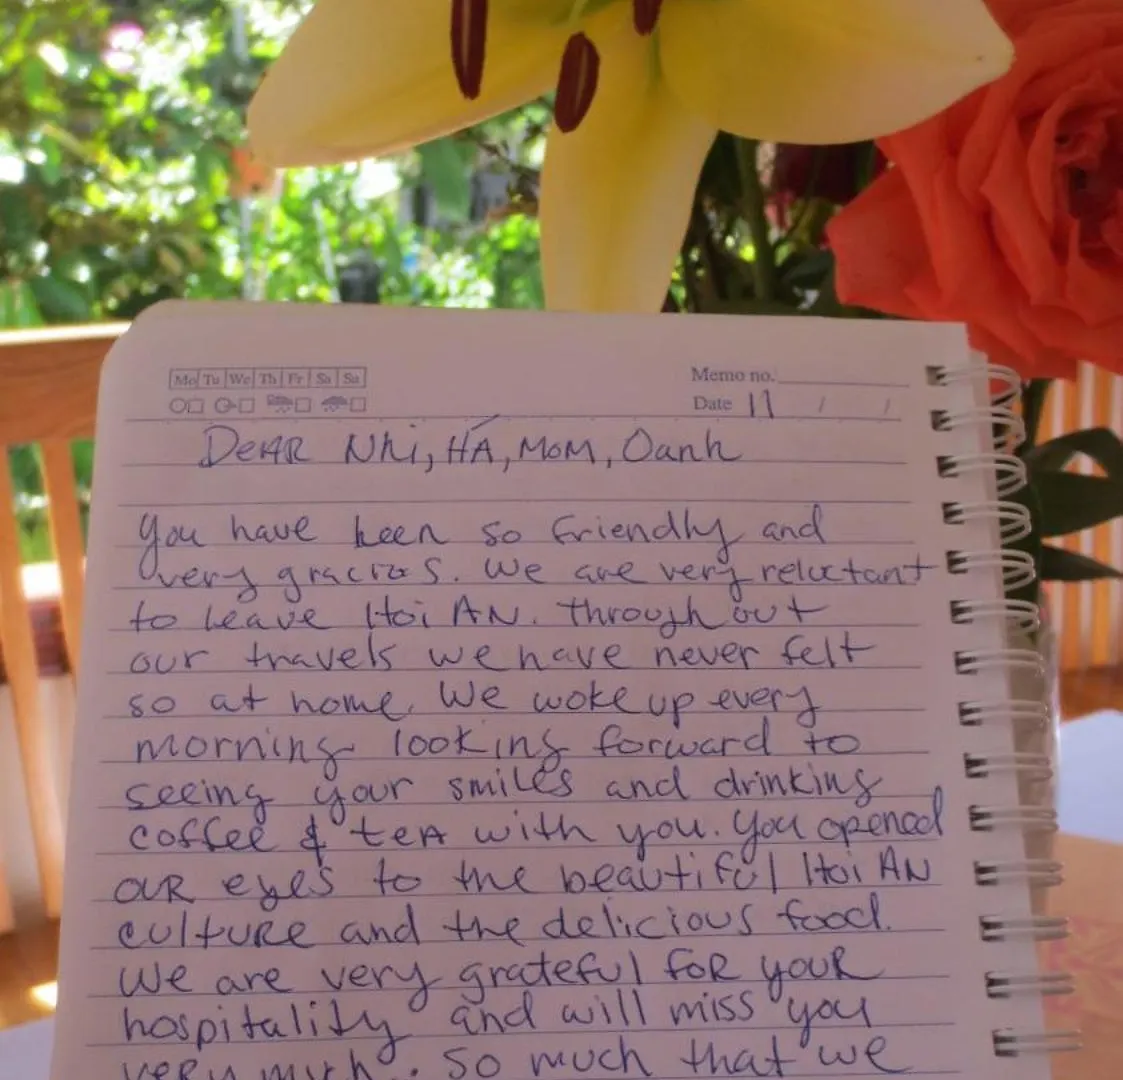 Mo Tu We Th Fr Sa Su
Memo no.
Date 11 / /
DeAR Nhi, HÁ, MOM, Oanh
You have been so friendly and
very gracios. We are very reluctant
to leave Hoi AN. Through out
our travels we have never felt
so at home. We woke up every
morning looking forward to
seeing your smiles and drinking
coffee & teA with you. You opened
OUR eyes to the beautiful Hoi AN
cultuRE and the delicious food.
We are very grateful foR youR
hospitality and will miss you
veRy much. So much that we